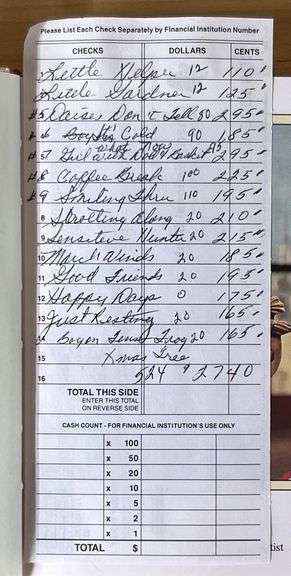 Please List Each Check Separately by Financial Institution Number
CHECKS DOLLARS CENTS
Little Helper 12 110
Little Gardner 12 125
#5 Daises Don't Tell 80 295
Cold 90 185
what now
#7 Girl with Doll & Basket 295
#8 Coffee Break 100 225
#9 Smiling Thru 110 195
8 Strolling Along 20 210
9 Sensitive Hunter 20 215
10 March Winds 20 185
11 Good Friends 20 195
12 Happy Days 0 175
13 Just Resting 20 165
Boy on Fence Frog 20 165
15 Xmas Tree
16 524 2740
TOTAL THIS SIDE
ENTER THIS TOTAL
ON REVERSE SIDE
CASH COUNT - FOR FINANCIAL INSTITUTION'S USE ONLY
x 100
x 50
x 20
x 10
x 5
x 2
x 1
TOTAL $
tist